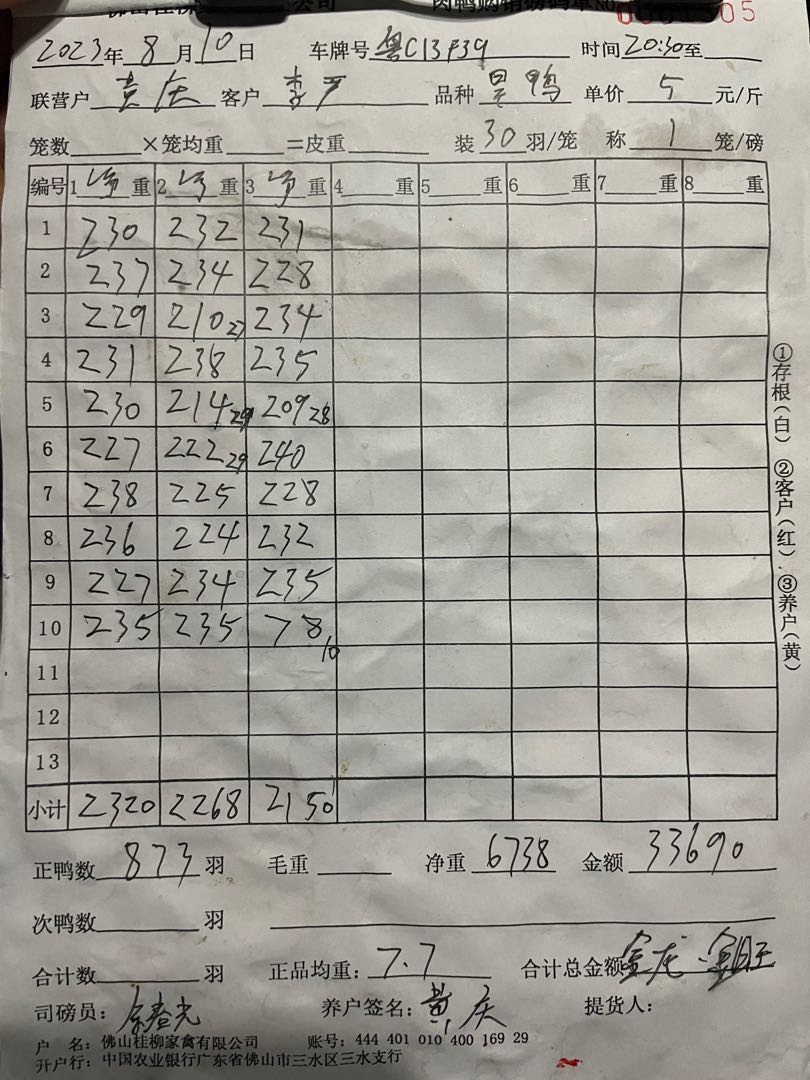 2023年 8月10日 车牌号 粤C13F39 时间 20:30至
联营户 黄庆 客户 李严 品种 昙鸭 单价 5 元/斤
笼数 ×笼均重 =皮重 装 30 羽/笼 称 1 笼/磅
编号 1净重 2净重 3净重 4重 5重 6重 7重 8重
1 230 232 231
2 237 234 228
3 229 210 27 234
4 231 238 235
5 230 214 29 209 28
6 227 222 29 240
7 238 225 228
8 236 224 232
9 227 234 235
10 235 235 78 10
11
12
13
小计 2320 2268 2150
①存根(白) ②客户(红) ③养户(黄)
正鸭数 873 羽 毛重 净重 6738 金额 33690
次鸭数 羽
合计数 羽 正品均重: 7.7 合计总金额 金龙
司磅员: 养户签名: 黄庆 提货人:
户 名: 佛山桂柳家禽有限公司 账号: 444 401 010 400 169 29
开户行: 中国农业银行广东省佛山市三水区三水支行